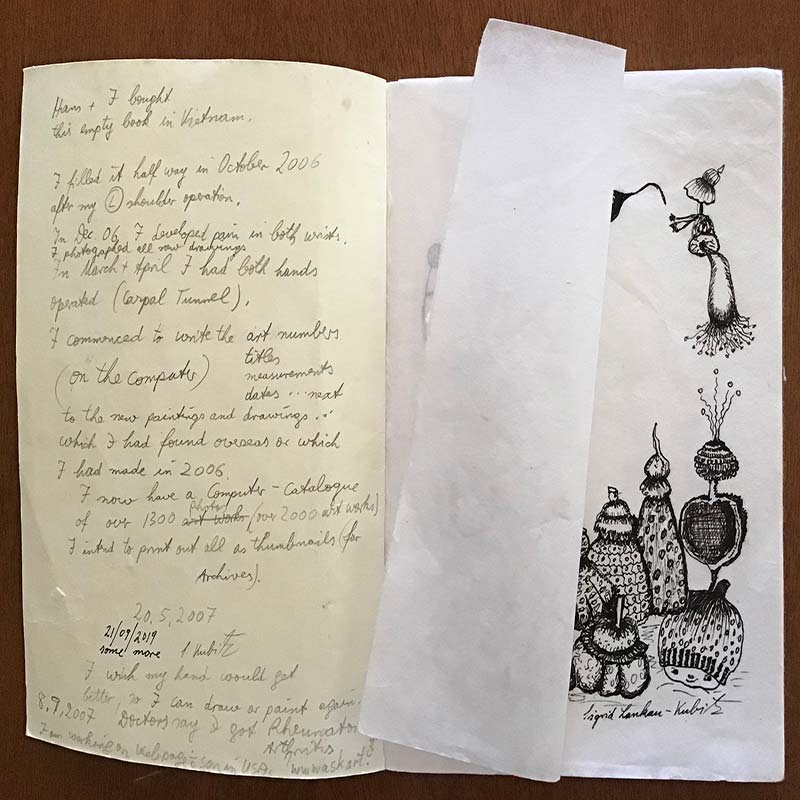 Hans + I bought
this empty book in Vietnam.
I filled it half way in October 2006
after my L shoulder operation.
In Dec. 06 I developed pain in both wrists.
I photographed all new drawings
In March + April I had both hands
operated (Carpal Tunnel).
I commenced to write the art numbers
titles
(on the computer) measurements
dates ... next
to the new paintings and drawings ...
which I had found overseas or which
I had made in 2006.
I now have a Computer-Catalogue
photos
of over 1300 art works (over 2000 art works)
I intend to print out all as thumbnails (for
Archives).
20.5.2007
21/09/2019
some more S Kubitz
I wish my hand would get
better, so I can draw or paint again.
8.9.2007 Doctors say I got Rheumatoid
Arthritis
I am working on webpage in USA. www.askart.
Sigrid Lankau-Kubitz